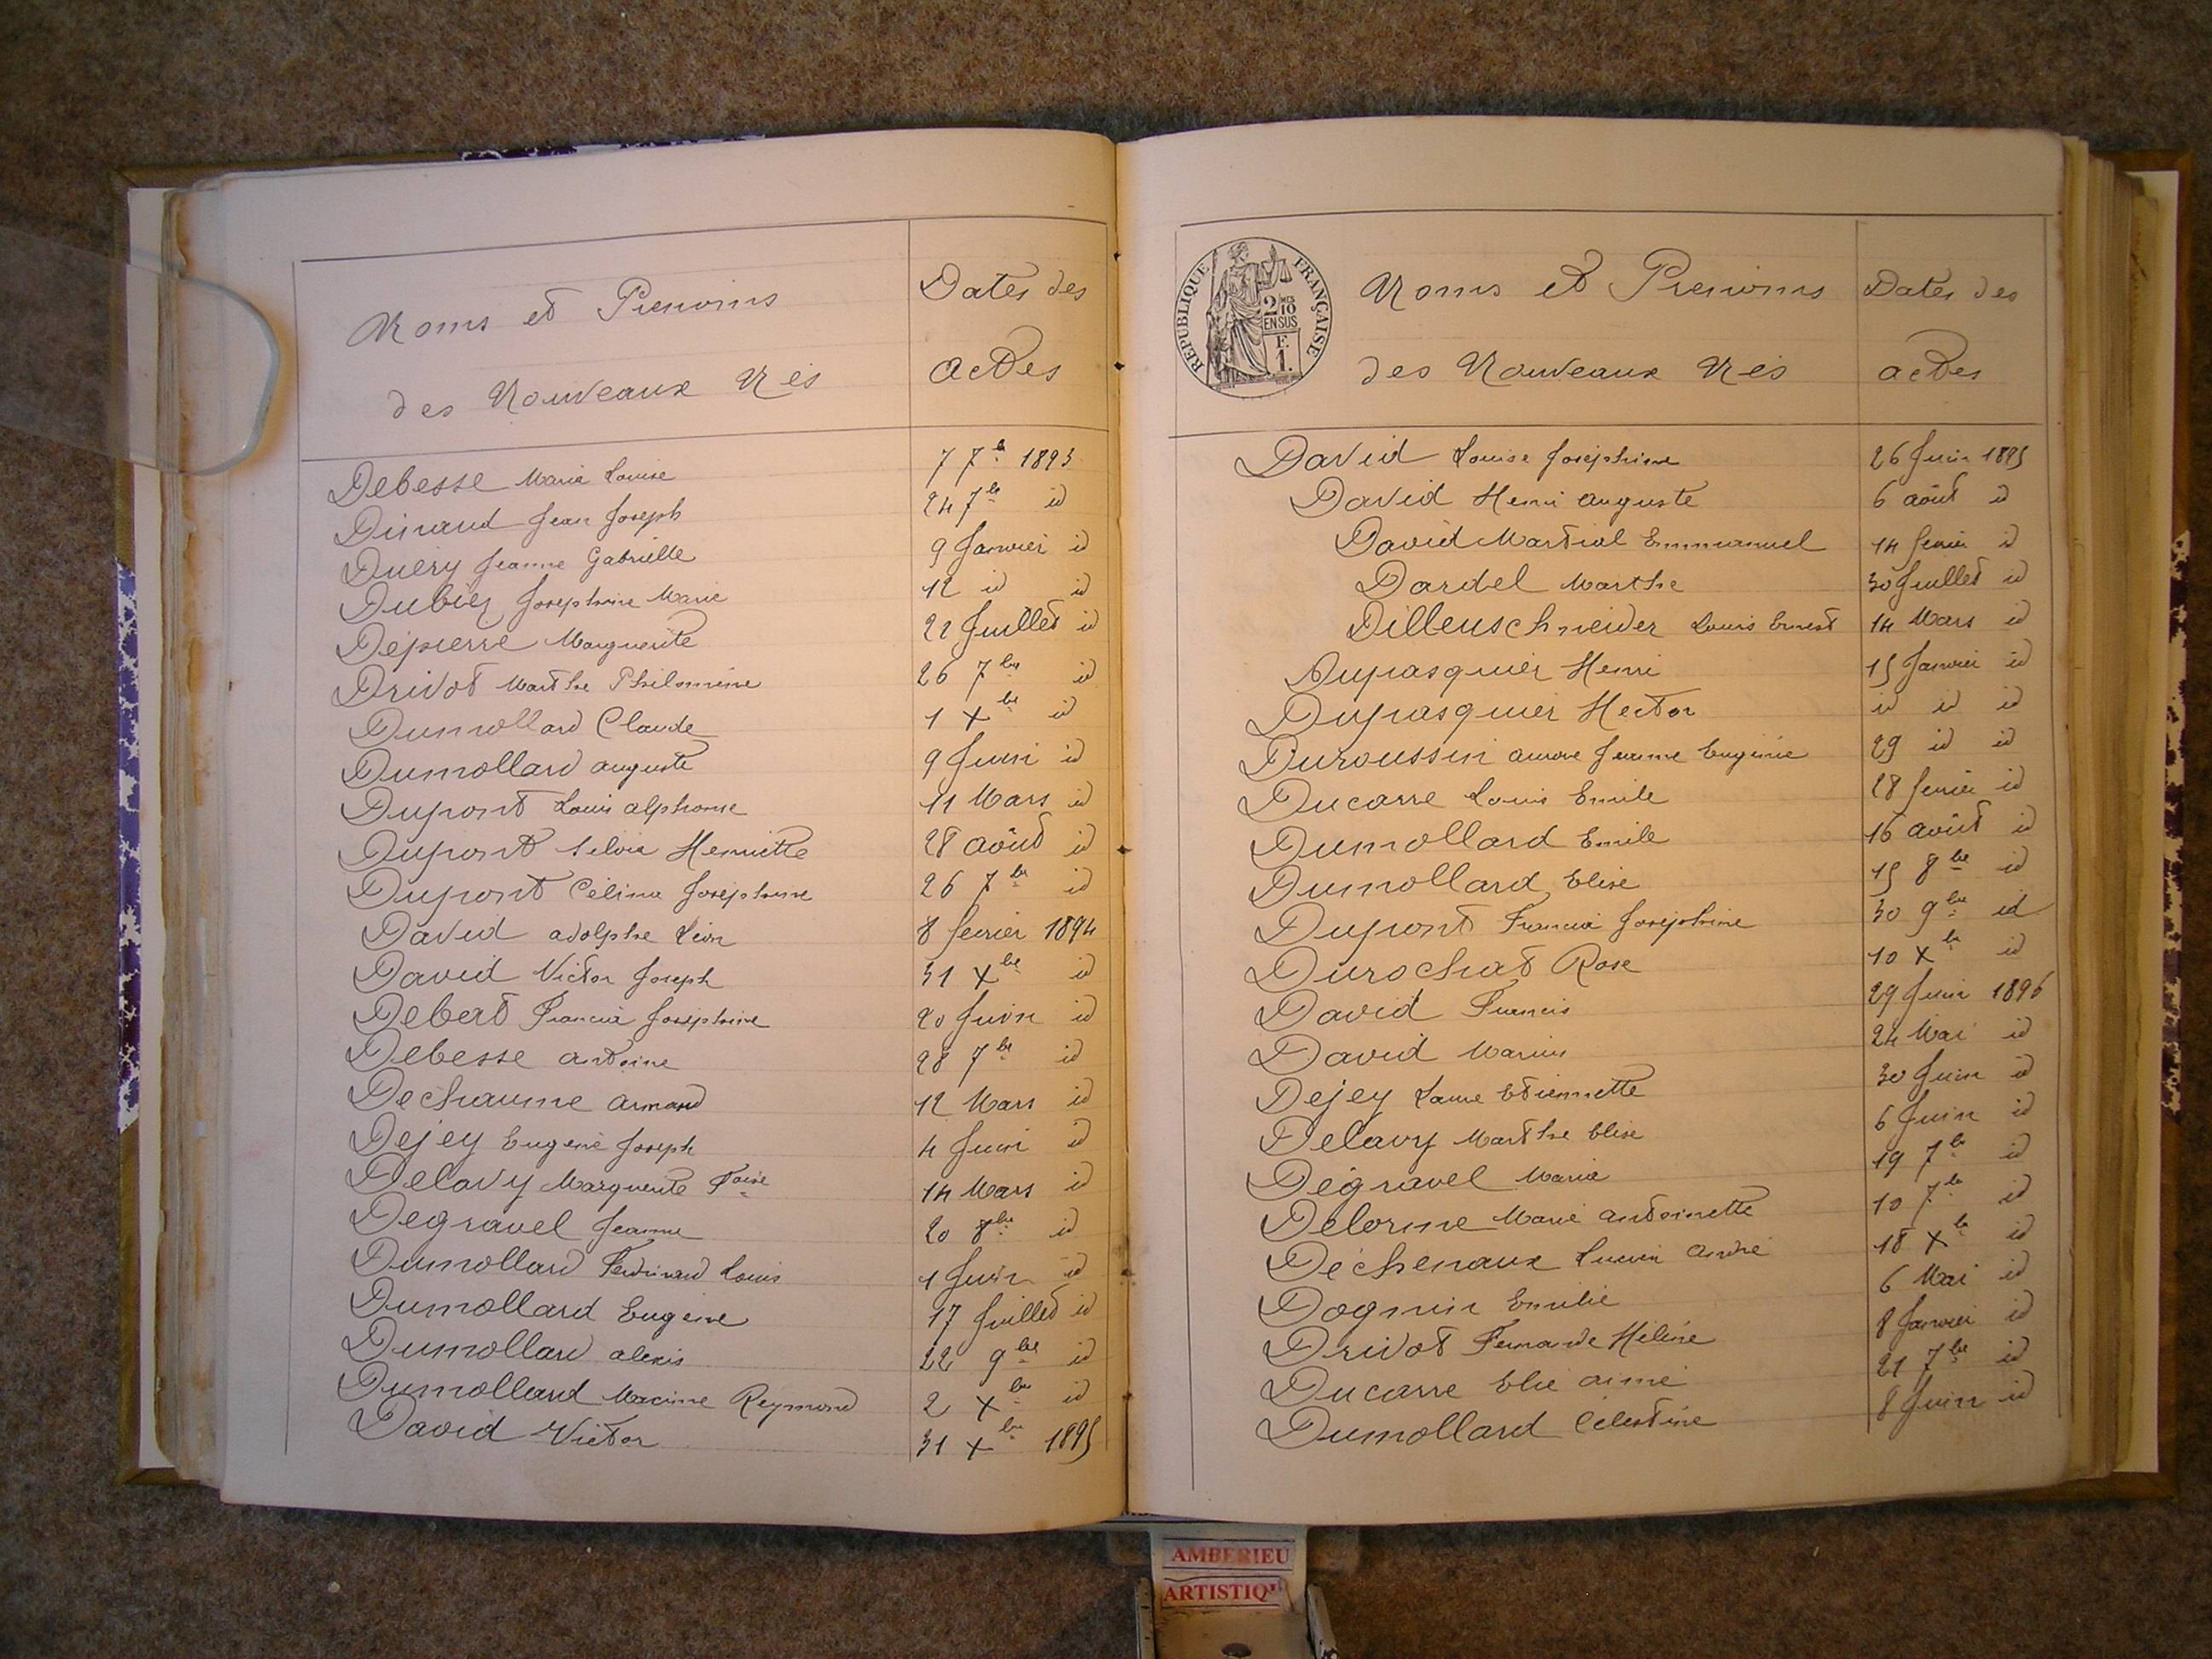 Noms et Prenoms
des Nouveaux Nés
Dates des
actes
Debesse Marie Louise 7 7bre 1893
Durand Jean Joseph 24 7bre id
Duery Jeanne Gabrielle 9 Janvier id
Josephine Marie 12 id id
Depierre Marguerite 22 Juillet id
Drivot Marthe Philomène 26 7bre id
Dumollard Claude 1 Xbre id
Dumollard auguste 9 Juin id
Dupont Louis alphonse 11 Mars id
Dupont Silvia Henriette 28 août id
Dupont Célina Joséphine 26 7bre id
David adolphe Léon 8 fevrier 1894
David Victor Joseph 31 Xbre id
Debert Francia Joséphine 20 Juin id
Debesse antoine 28 7bre id
Dechaume armand 12 Mars id
Dejey Eugène Joseph 4 Juin id
Delavy Marguerite Foise 14 Mars id
Degravel Jeanne 20 8bre id
Dumollard Ferdinand Louis 1 Juin id
Dumollard Eugène 17 Juillet id
Dumollard alexis 22 9bre id
Dumollard Maxime Reymond 2 Xbre id
David Victor 31 Xbre 1895
REPUBLIQUE FRANÇAISE
2/10 EN SUS
F. 1.
Noms et Prenoms
des Nouveaux Nés
Dates des
actes
David Louise Joséphine 26 Juin 1895
David Henri auguste 6 août id
David Martial Emmanuel 14 fevrier id
Dardel Marthe 30 Juillet id
Dillenschneider Louis Ernest 14 Mars id
Dupasquier Henri 15 Janvier id
Dupasquier Hector id id id
Duroussin aurore Jeanne Eugénie 29 id id
Ducarre Louis Emile 28 fevrier id
Dumollard Emile 16 août id
Dumollard Elise 15 8bre id
Dupont Francia Joséphine 30 9bre id
Durochat Rose 10 Xbre id
David Francis 29 Juin 1896
David Marius 24 Mai id
Dejey Laure Etiennette 30 Juin id
Delavy Marthe Elise 6 Juin id
Dégravel Maria 19 7bre id
Delorme Marie antoinette 10 7bre id
Déchenaux Lucien André 18 Xbre id
Dognin Emilie 6 Mai id
Drivot Fernande Hélène 8 Janvier id
Ducarre Elie aimé 21 7bre id
Dumollard Célestine 8 Juin id
AMBERIEU
ARTISTIQU